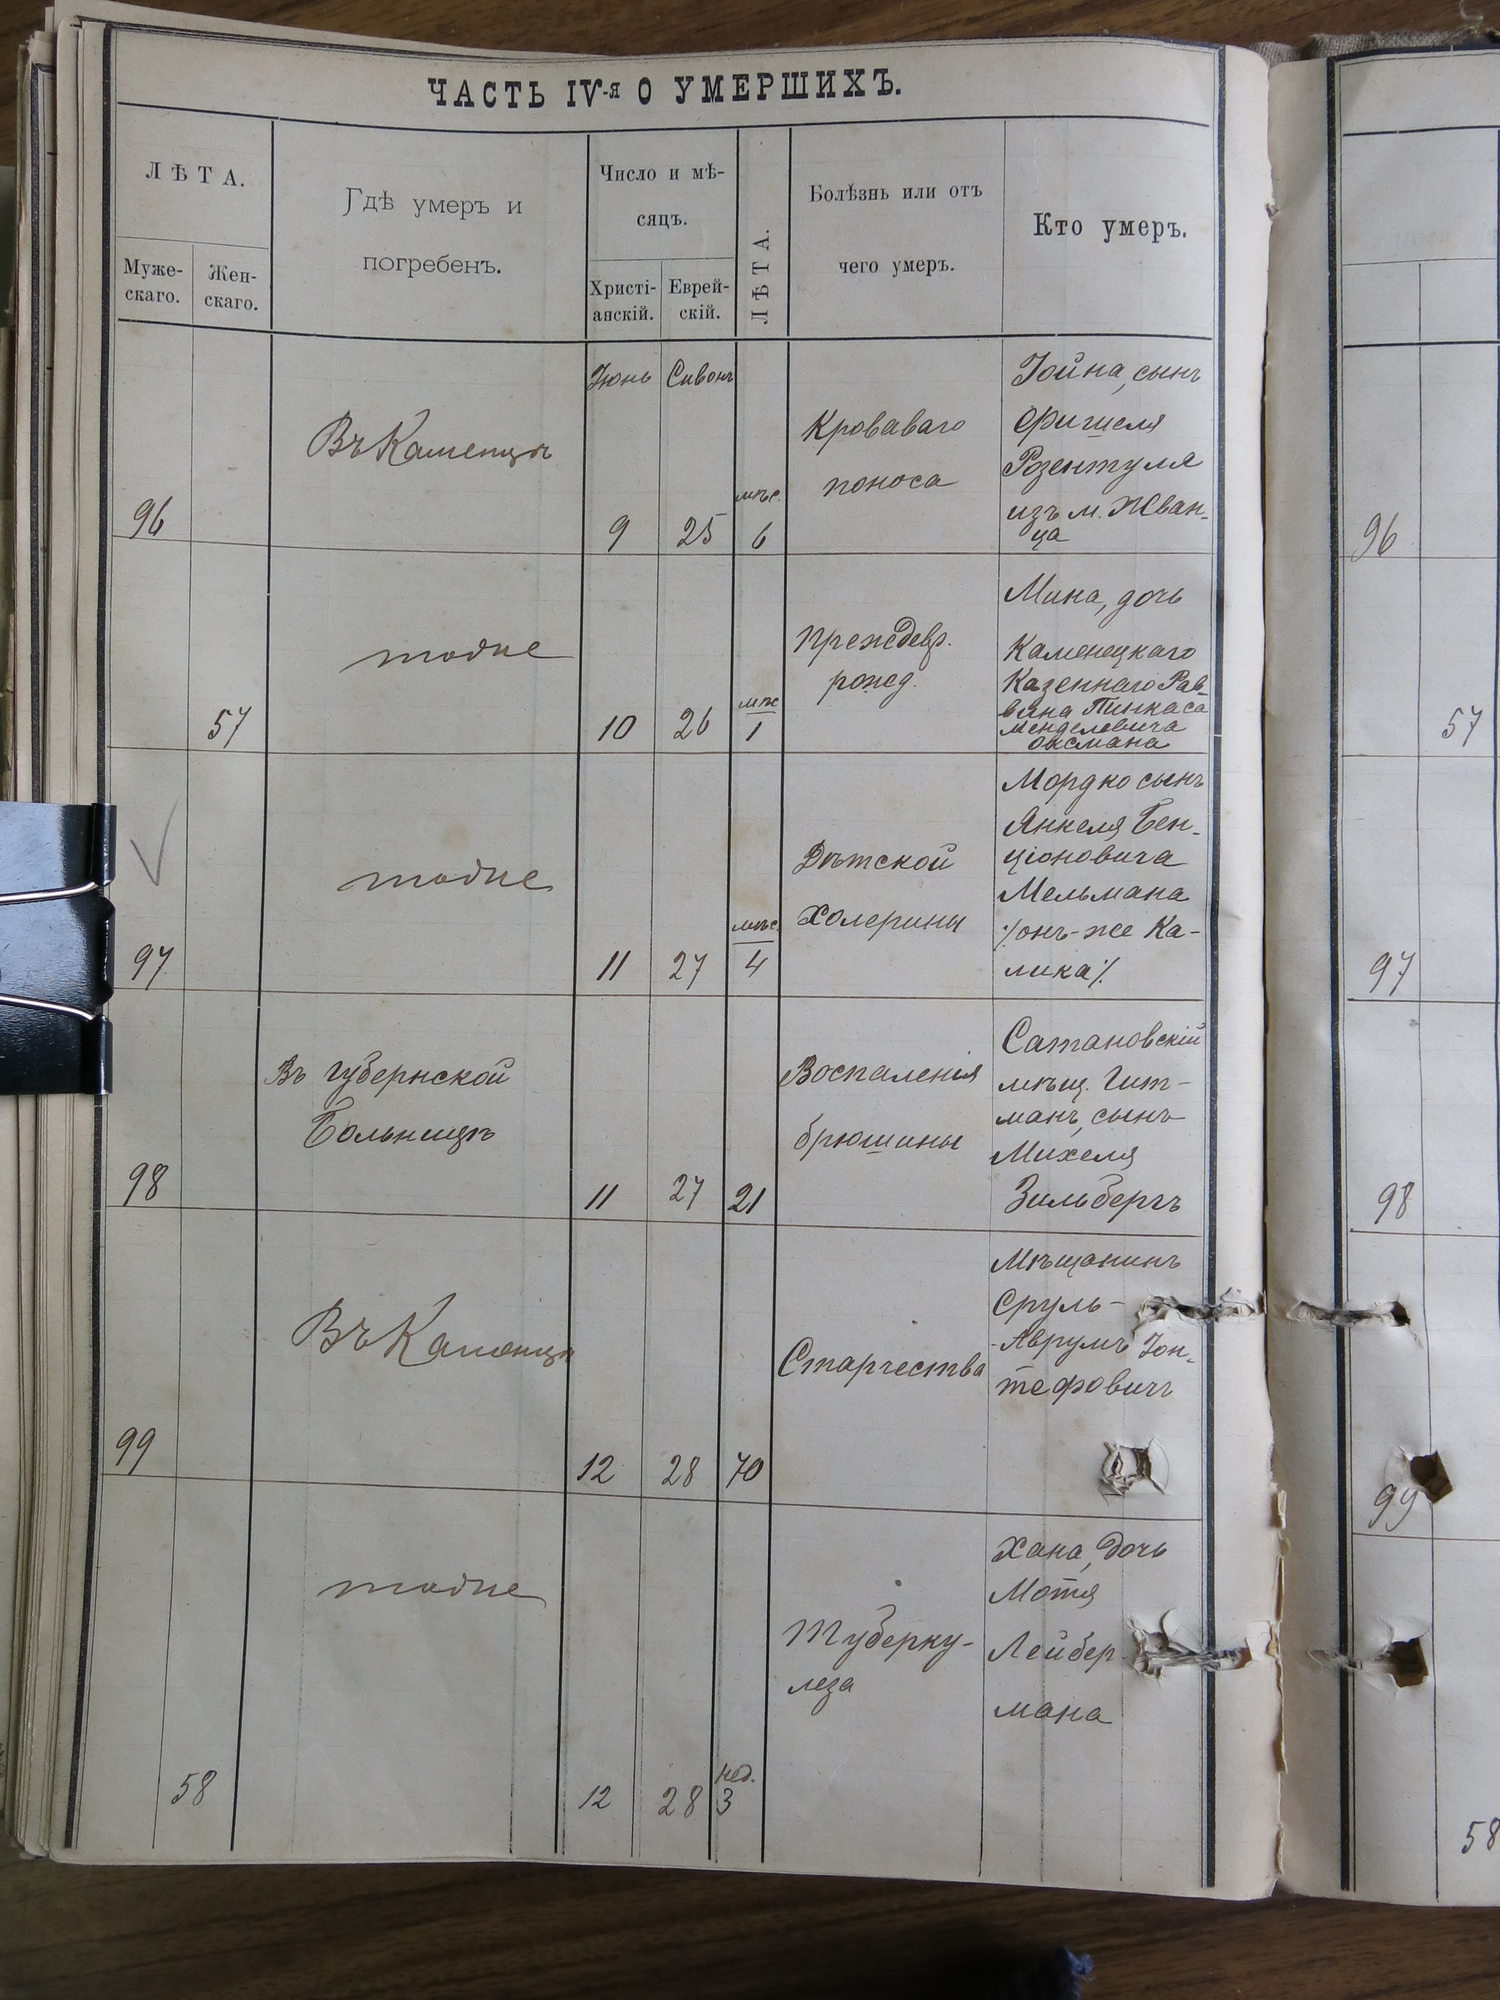 ЧАСТЬ IV-я О УМЕРШИХЪ.
ЛѢТА.
Муже-
скаго.
Жен-
скаго.
Гдѣ умеръ и
погребенъ.
Число и мѣ-
сяцъ.
Христі-
анскій.
Еврей-
скій.
ЛѢТА.
Болѣзнь или отъ
чего умеръ.
Кто умеръ.
96
Въ Каменцѣ
Іюнь
9
Сивонъ
25
мѣс.
6
Кроваваго
поноса
Іойна, сынъ
Фишеля
Розентуля
изъ м. Жван-
ца
57
тоже
10
26
мѣс
1
преждевр.
рожд.
Мина, дочь
Каменецкаго
Казеннаго Рав-
вина Пинкаса
Менделевича
Оксмана
97
тоже
11
27
мѣс.
4
Дѣтской
холерины
Мордко сынъ
Янкеля Бен-
ціоновича
Мельмана
/онъ-же Ка-
лика/.
98
Въ Губернской
Больницѣ
11
27
21
Воспаленія
брюшины
Сатановскій
мѣщ. Гит-
манъ, сынъ
Михеля
Зильбергъ
99
Въ Каменцѣ
12
28
70
Старчества
Мѣщанинъ
Сруль-
-Аврумъ Іон-
тефовичъ
58
тоже
12
28
нед.
3
Туберку-
леза
Хана, дочь
Мотя
Лейбер
мана
96
57
97
98
99
58